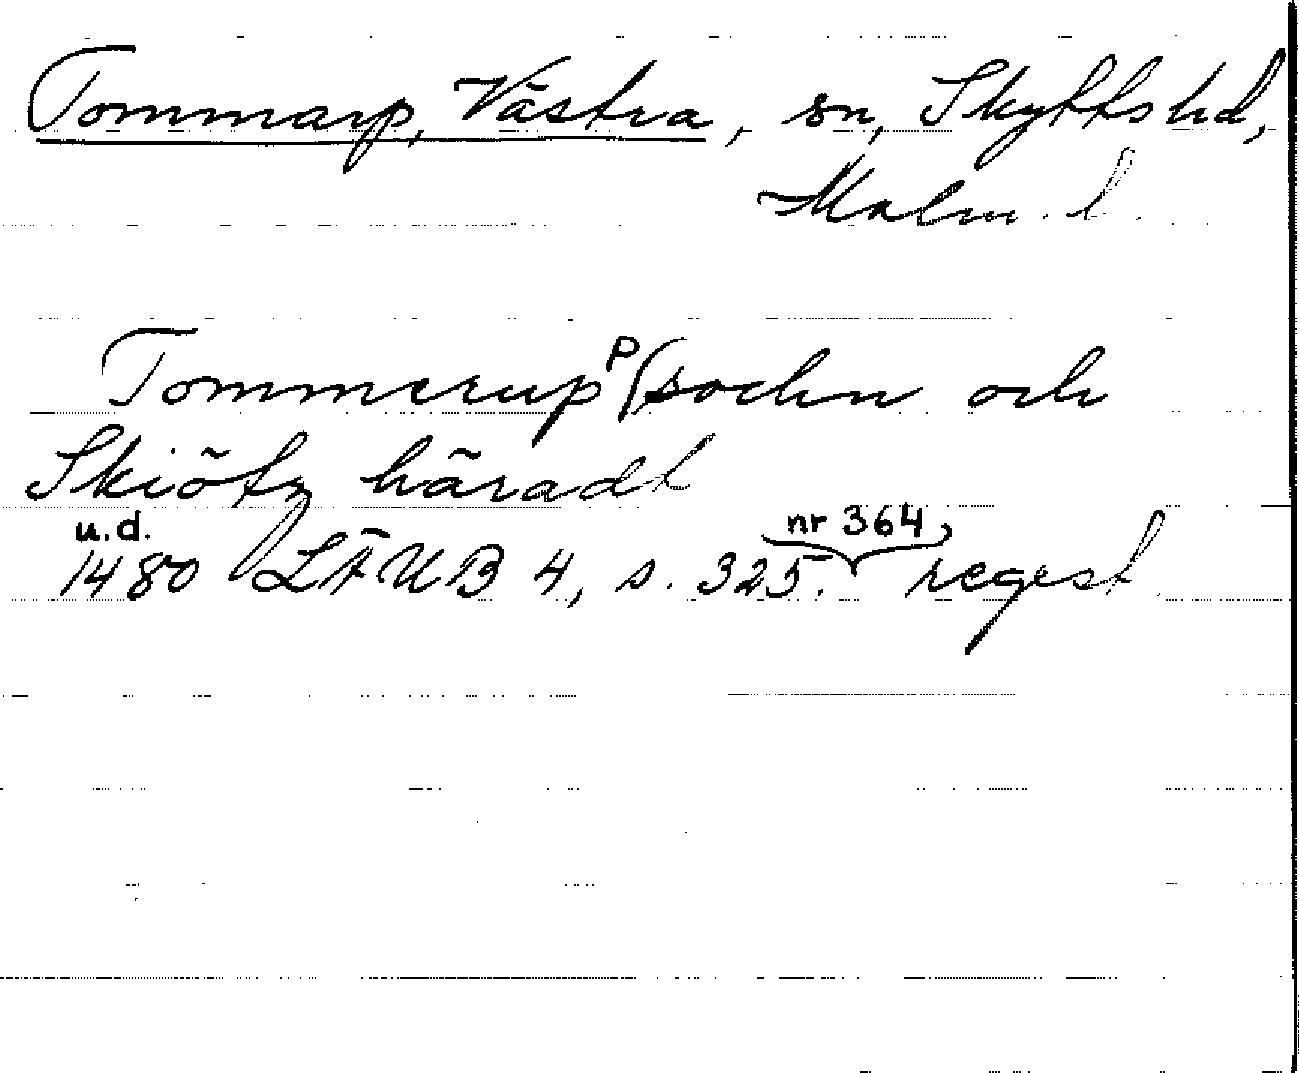 Tommarp, Västra, sn, Skytts hd,
Malm. l.
Tommerup p (sochn och
Skiötz häradt
u.d. nr 364
1480 LÄUB 4, s. 325. regest